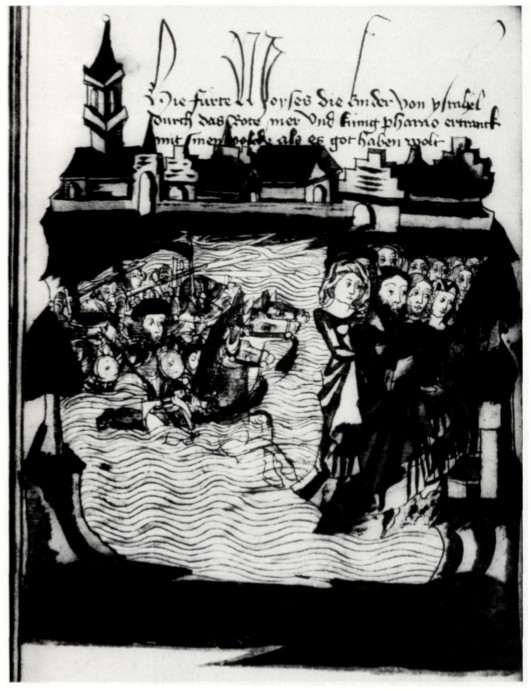 Hie fürte Moyses die kinder von ysrahel
durch das Rote mer vnd künig pharao ertranck
mit sinem volck als es got haben wolt